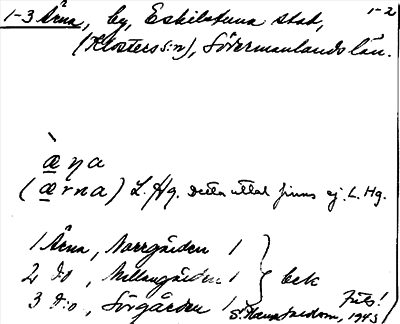 1-3 Ärna, by, Eskilstuna stad, 1-2
(Klosters s:n), Södermanlands län.
æŋa
(ærna) L. Hg. Detta uttal finns ej. L. Hg.
1 Ärna, Norrgården 1
2 d:o, Mellangården 1 } bek
3 d:o, Sörgården 1
Frits!
1943